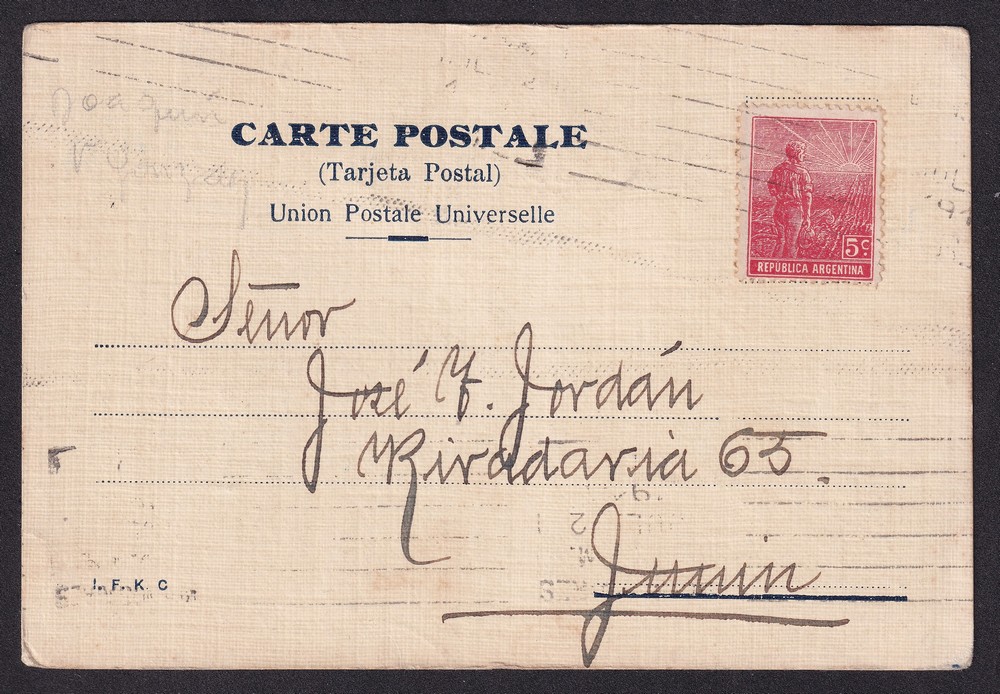 CARTE POSTALE
(Tarjeta Postal)
Union Postale Universelle
5c.
REPUBLICA ARGENTINA
Señor
José F. Jordán
Rivadavia 65.
Junin
I. F. K. C